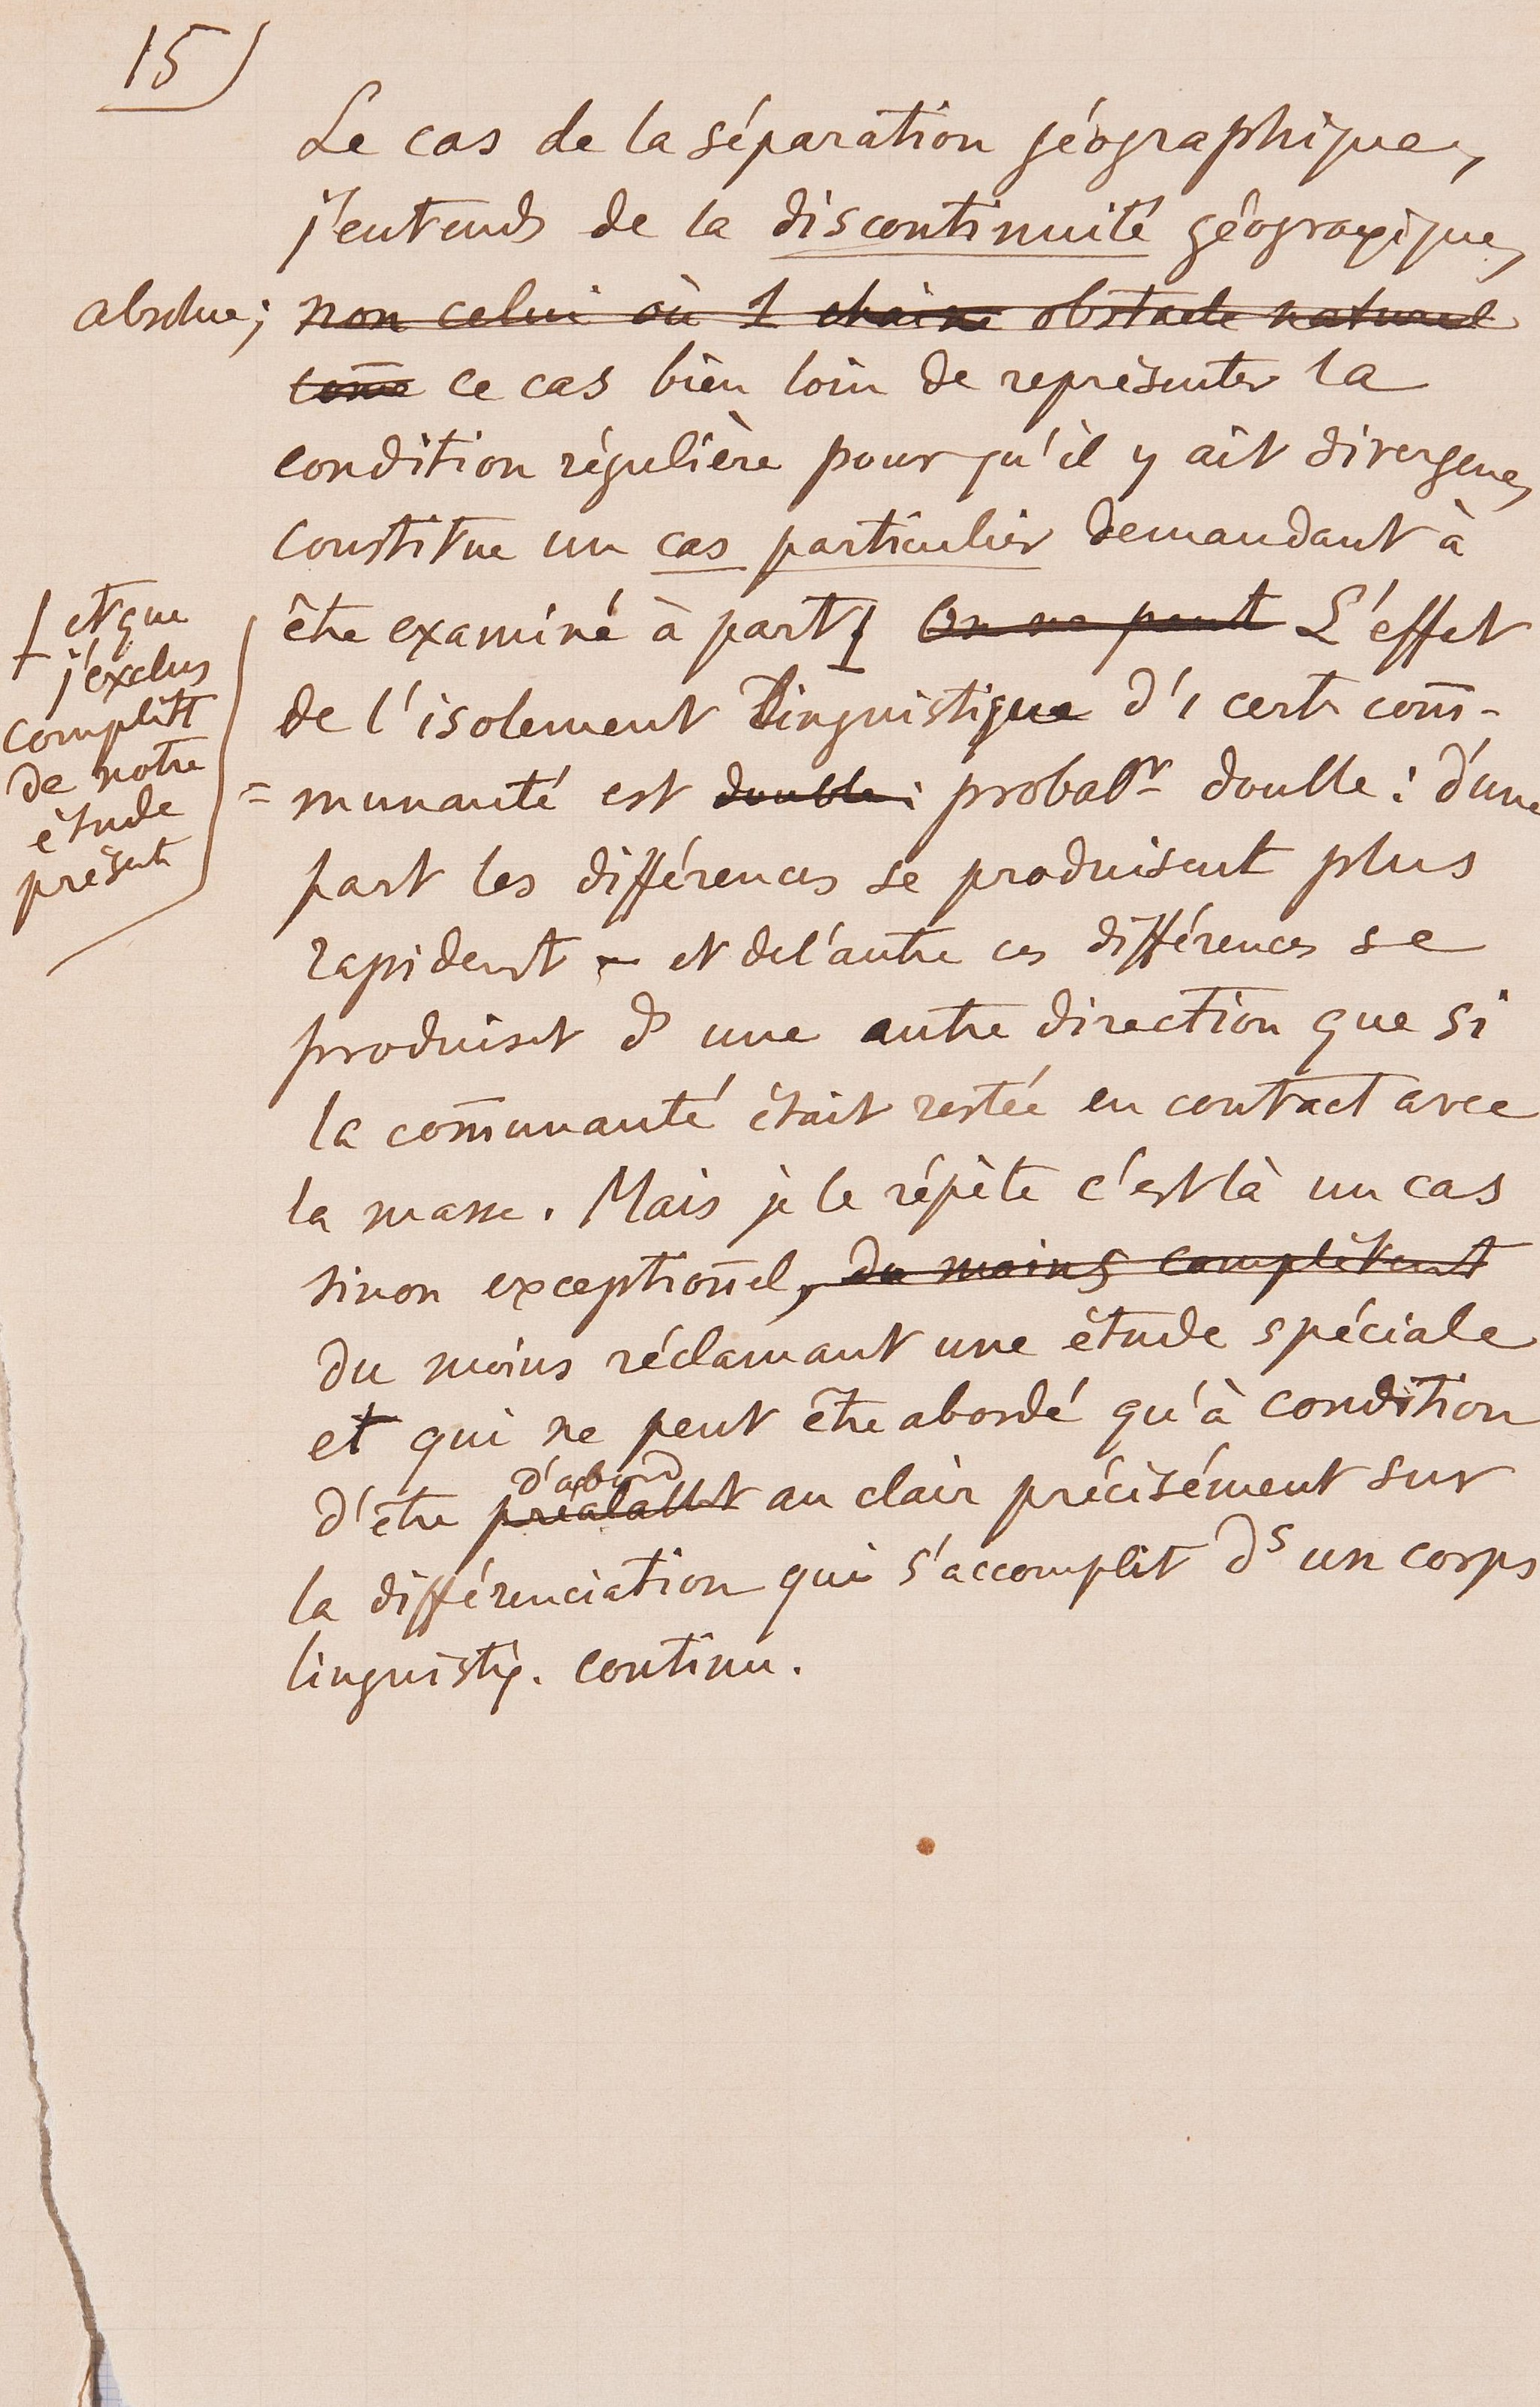 15)
Le cas de la séparation géographique,
j'entends de la discontinuité géograφique,
absolue; non celui où 1 chaîne obstacle naturel
com̄e ce cas bien loin de représenter la
condition régulière pour qu'il y ait divergence,
constitue un cas particulier demandant à
être examiné à part On ne peut L'effet
et que
j'exclus
complètt
de notre
étude
présente
de l'isolement linguistique d'1 certe com̄-
= munauté est double: probablt double: d'une
part les différences se produisent plus
rapidemt – et de l'autre ces différences se
produisent ds une autre direction que si
la com̄unauté était restée en contact avec
la masse. Mais je le répète c'est là un cas
sinon exceptioñel, du moins complètement
du moins réclamant une étude spéciale
et qui ne peut être abordé qu'à condition
d'abord
d'être préalablt au clair précisément sur
la différenciation qui s'accomplit ds un corps
linguistiq. continu.